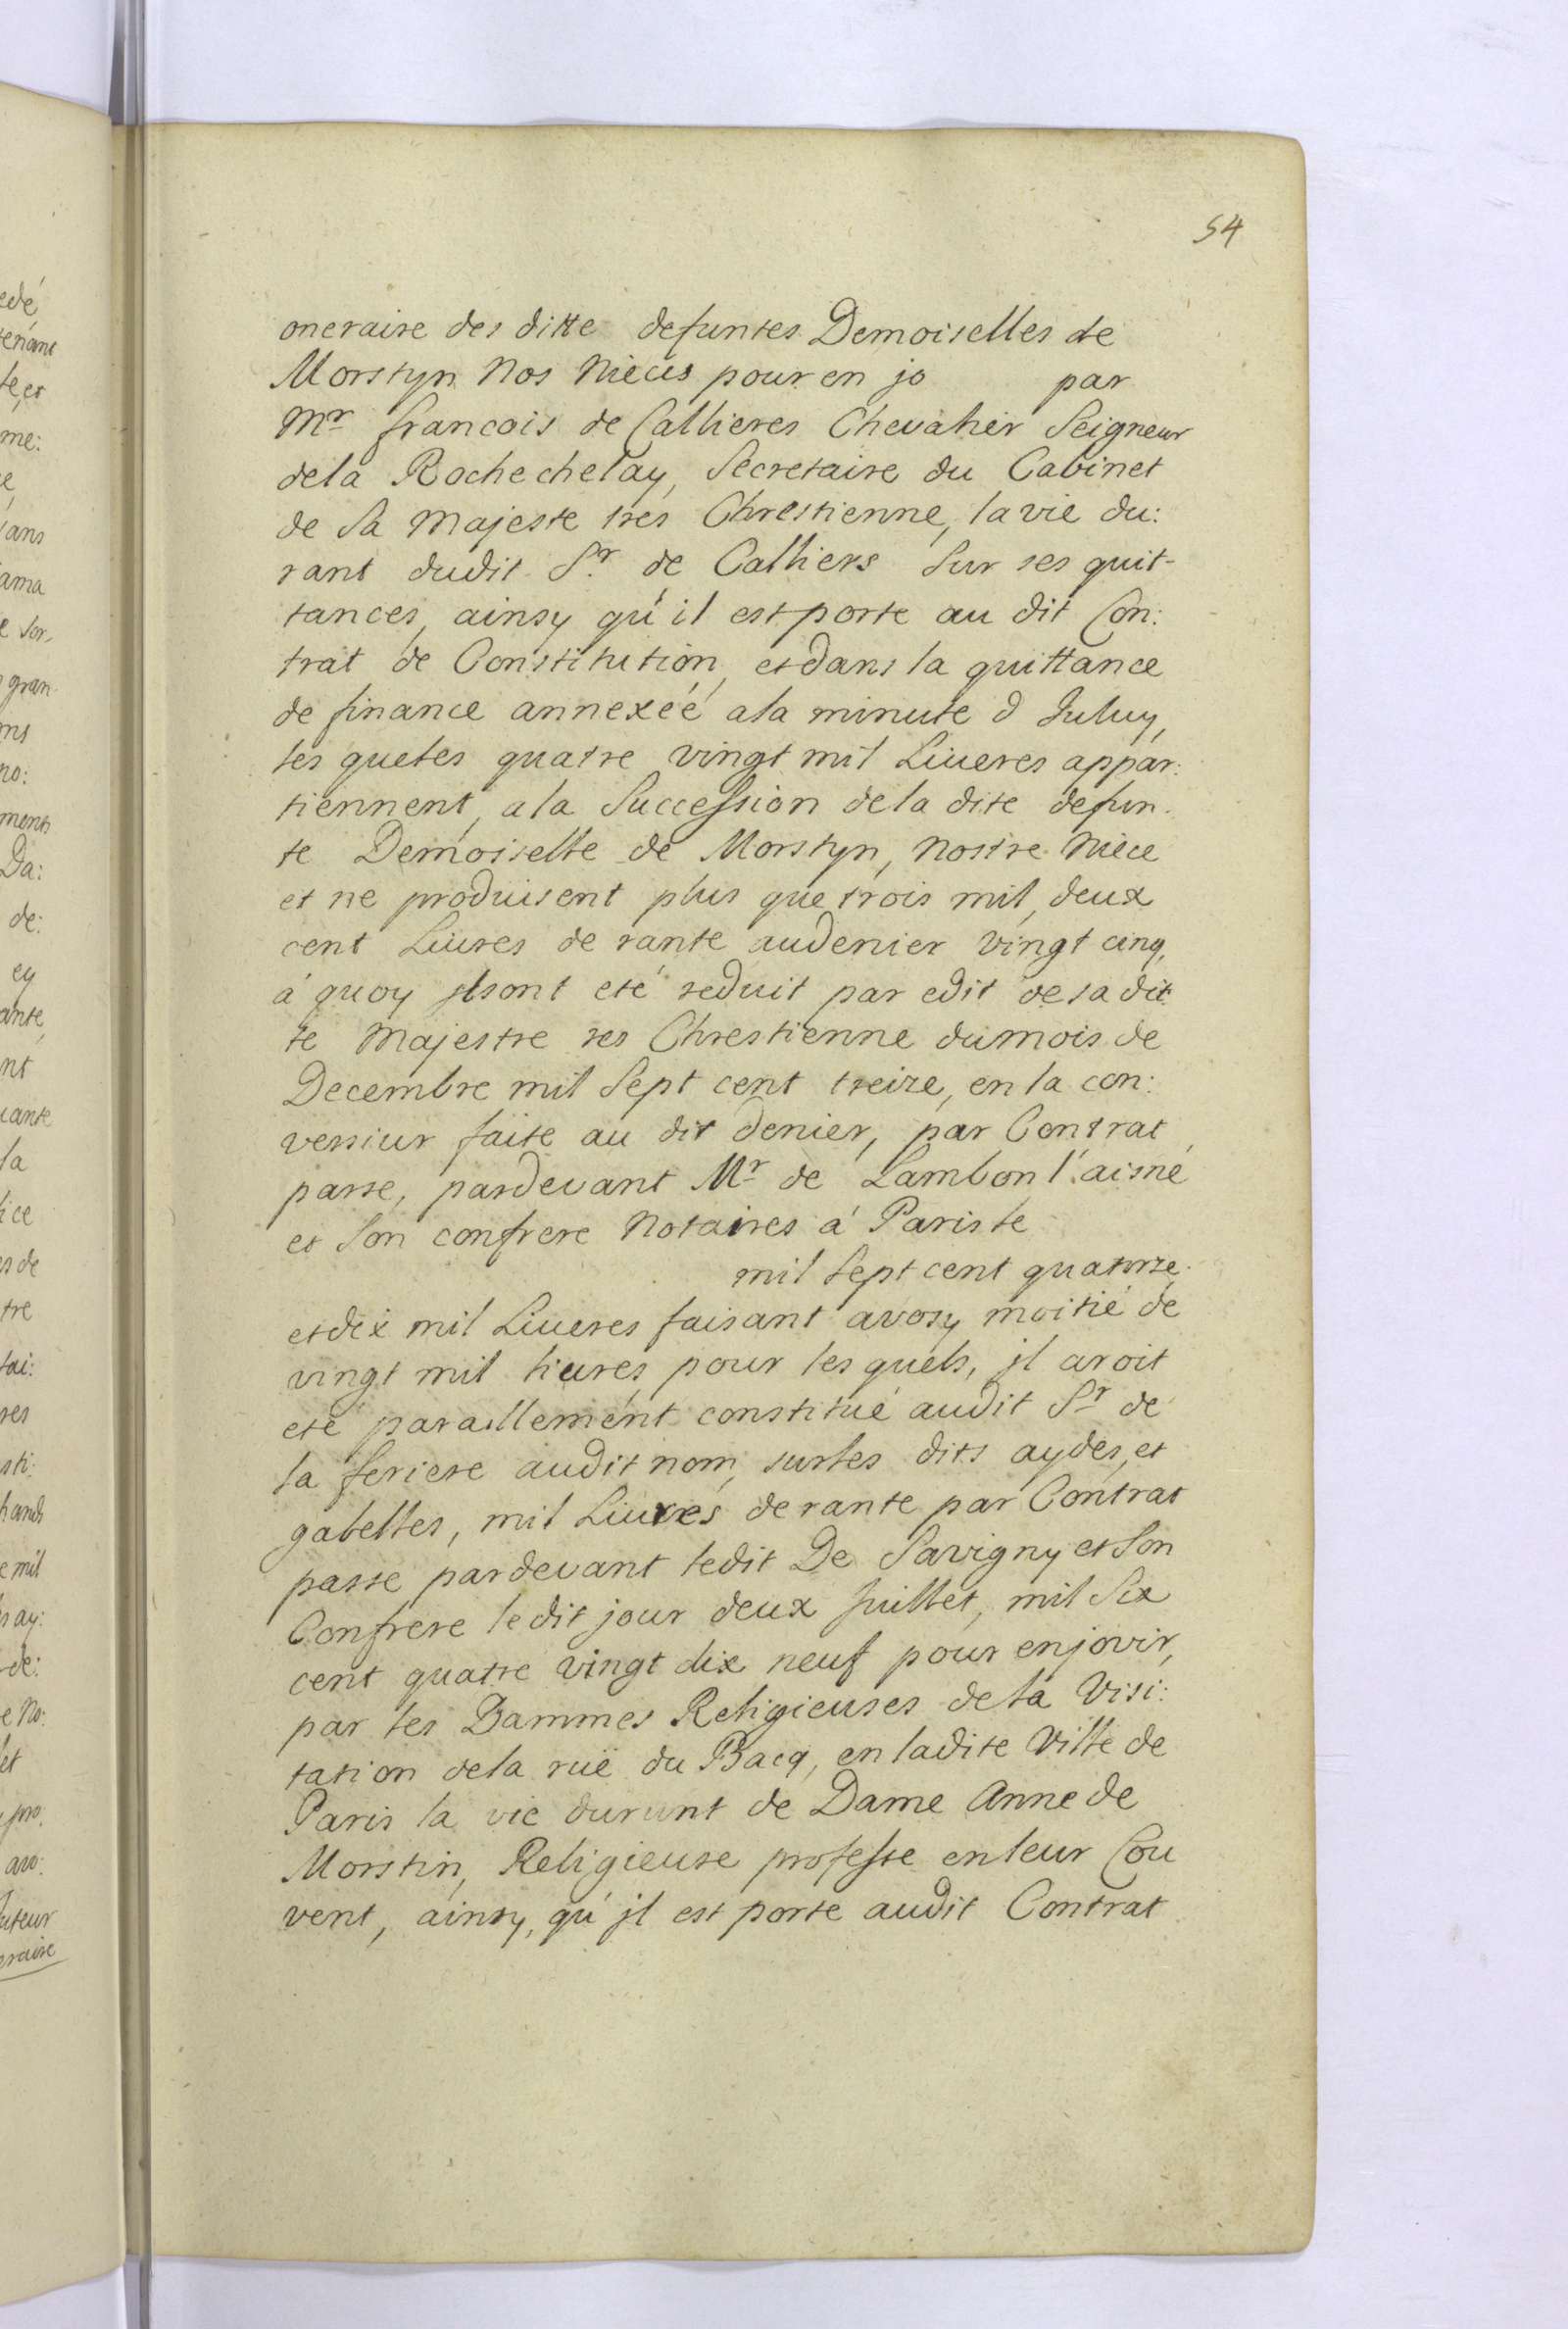 54
oneraire des ditte defuntes Demoiselles de
Morstyn Nos Nieces pour en jo par
Mr francois de Callieres Chevalier Seigneur
dela Rochechelay, Secretaire du Cabinet
de Sa Majeste tres Chrestienne, la vie du:
rant dudit Sr. de Calliers Sur ses quit-
tances, ainsy qu'il est porte au dit Con:
trat de Constitution, et dans la quittance
de finance annexéé ala minute d Juluy,
les queles quatre vingt mil Liueres appar:
tiennent, a la Succession dela dite defun.
te Demoiselle de Morstyn, Nostre Niece
et ne produisent plus que trois mil, deux
cent Liures de rante audenier vingt cinq,
á quoy jlsont eté reduit par edit de sa dit
te Majestre res Chrestienne dumois de
Decembre mil Sept cent treize, en la con:
versiur faite au dit denier, par Contrat
passe, pardevant Mr de Lambon l'aisné
et Son confrere Notaires á Paris le
mil Sept cent quatorze.
et dix mil Liueres faisant avosy moitié de
vingt mil liures, pour les quels, jl avoit
eté paraillement constitué audit Sr de
la feriere audit nom, sur les dits aydes, et
gabelles, mil Liuxres de rante par Contrat
passe pardevant ledit De Savigny et Son
Confrere le dit jour deux Juillet, mil Six
cent quatre vingt dix neuf pour enjovir,
par les Dammes Religieuses dela Visi:
tation dela ruë du Bacq, en ladite Ville de
Paris la vie durunt de Dame Anne de
Morstin, Religieuse professe en leur Cou
vent, ainsy, qu'jl est porte audit Contrat